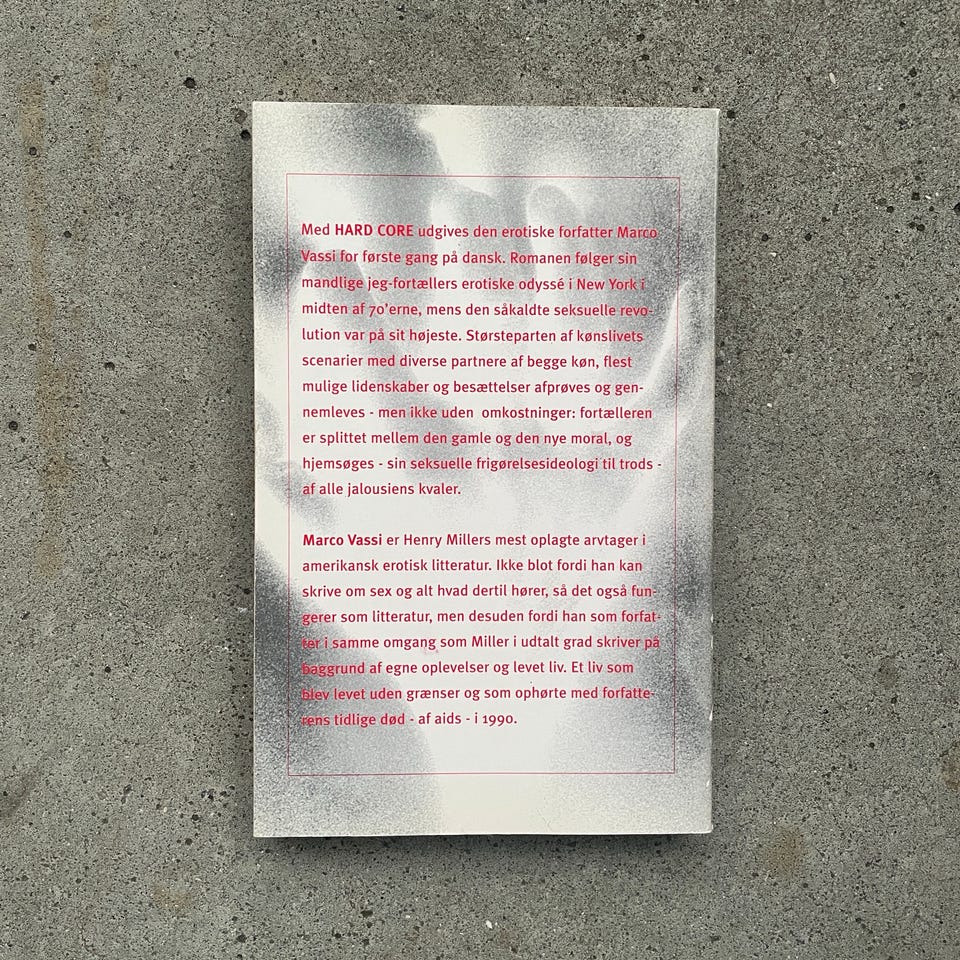 Med HARD CORE udgives den erotiske forfatter Marco
Vassi for første gang på dansk. Romanen følger sin
mandlige jeg-fortællers erotiske odyssé i New York i
midten af 70'erne, mens den såkaldte seksuelle revo-
lution var på sit højeste. Størsteparten af kønslivets
scenarier med diverse partnere af begge køn, flest
mulige lidenskaber og besættelser afprøves og gen-
nemleves - men ikke uden omkostninger: fortælleren
er splittet mellem den gamle og den nye moral, og
hjemsøges - sin seksuelle frigørelsesideologi til trods -
af alle jalousiens kvaler.
Marco Vassi er Henry Millers mest oplagte arvtager i
amerikansk erotisk litteratur. Ikke blot fordi han kan
skrive om sex og alt hvad dertil hører, så det også fun-
gerer som litteratur, men desuden fordi han som forfat-
ter i samme omgang som Miller i udtalt grad skriver på
baggrund af egne oplevelser og levet liv. Et liv som
blev levet uden grænser og som ophørte med forfatte-
rens tidlige død - af aids - i 1990.